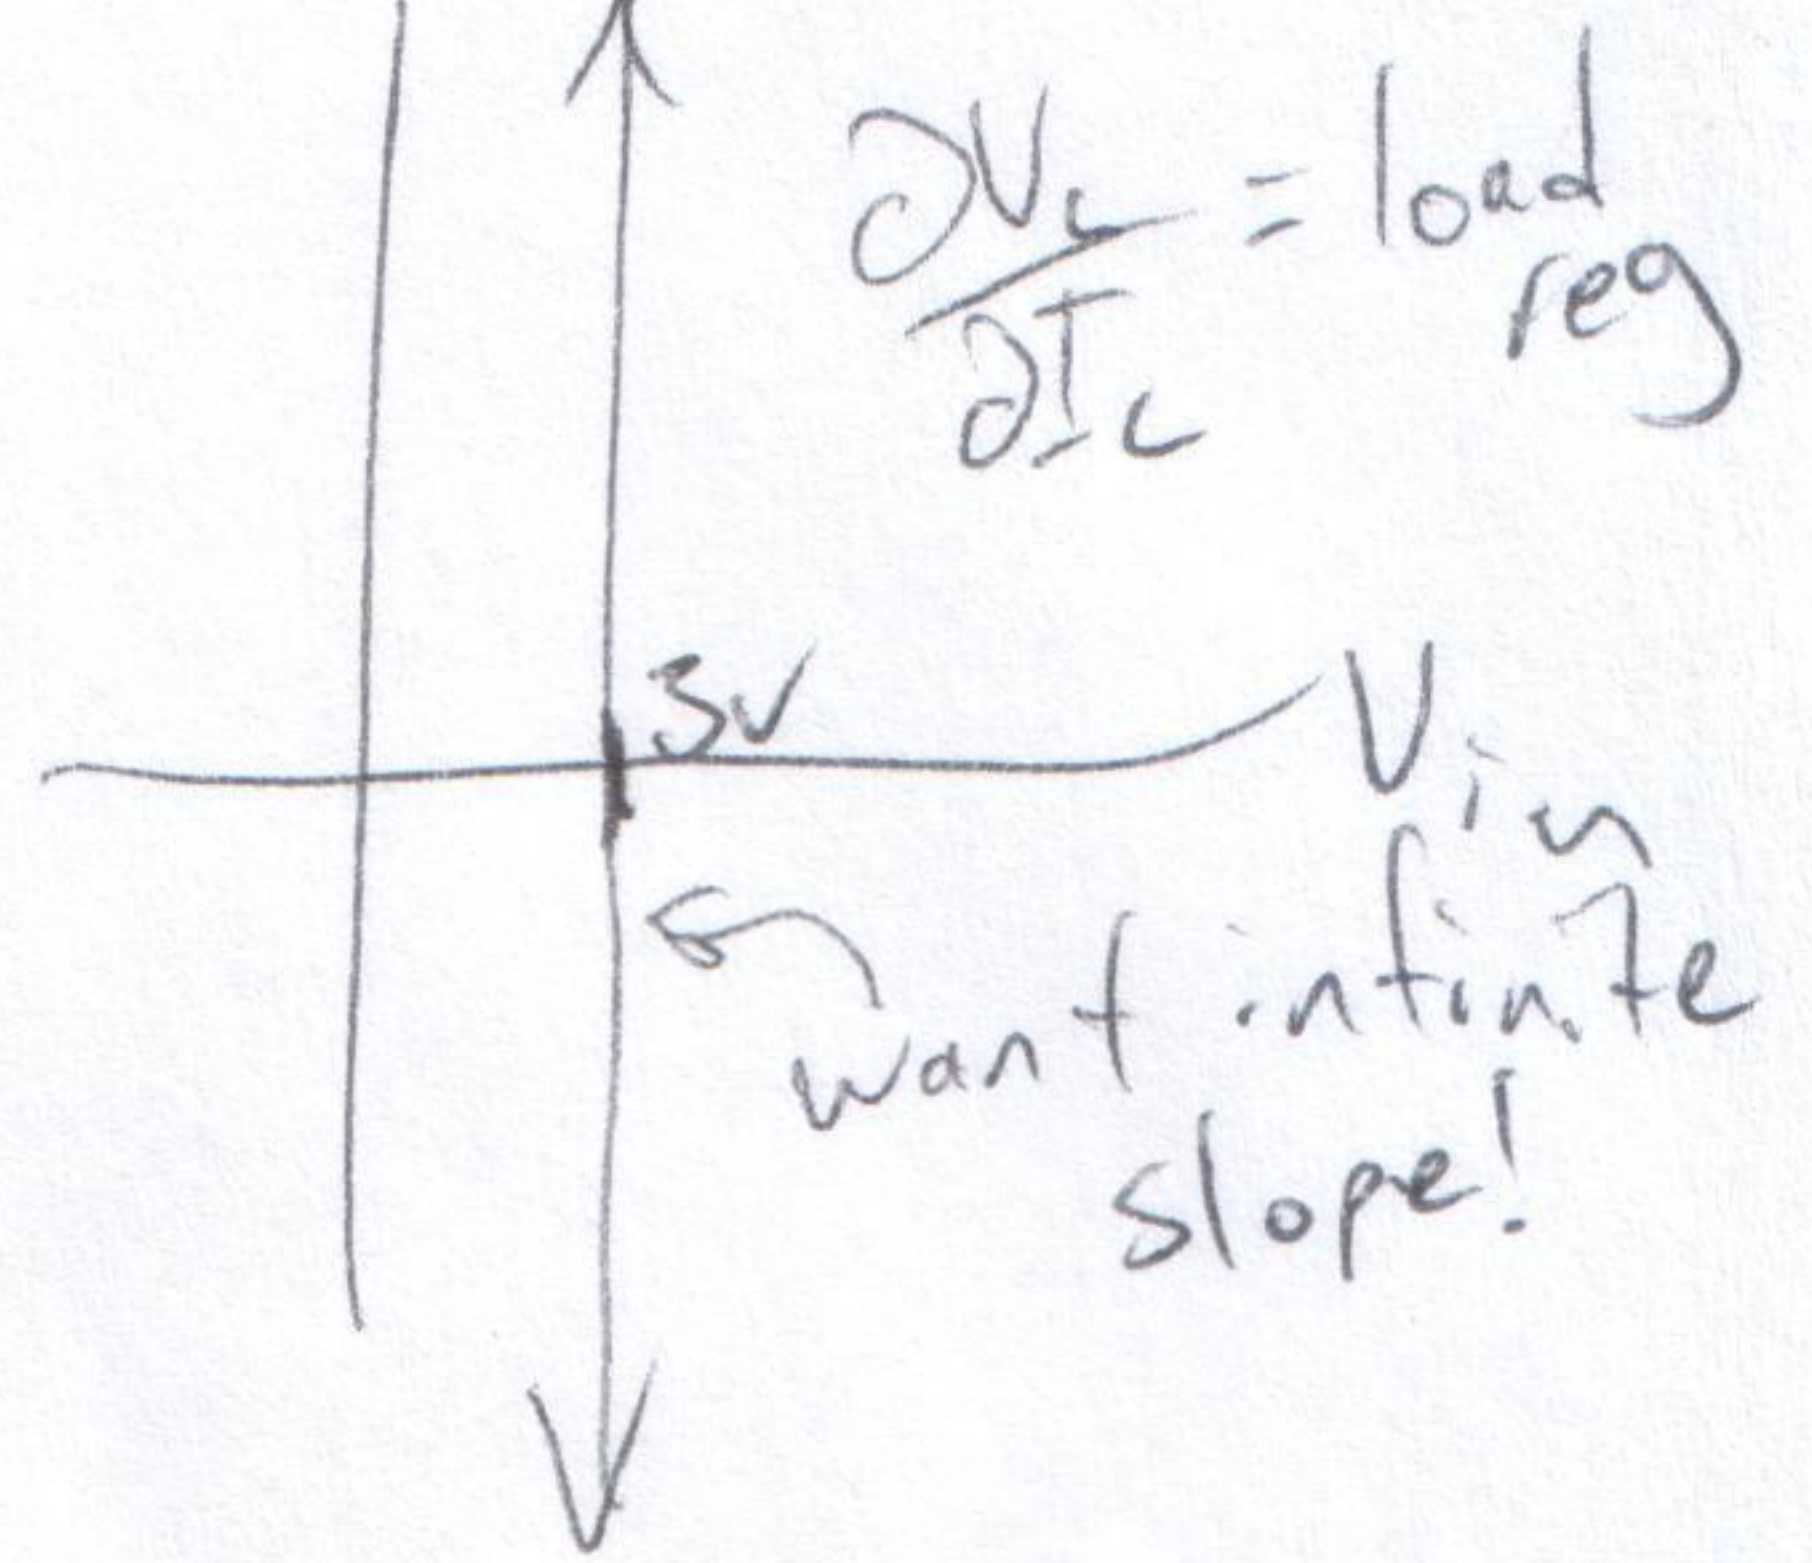 ∂V_L/∂I_L = load reg
3V
V_in
want infinite
slope!